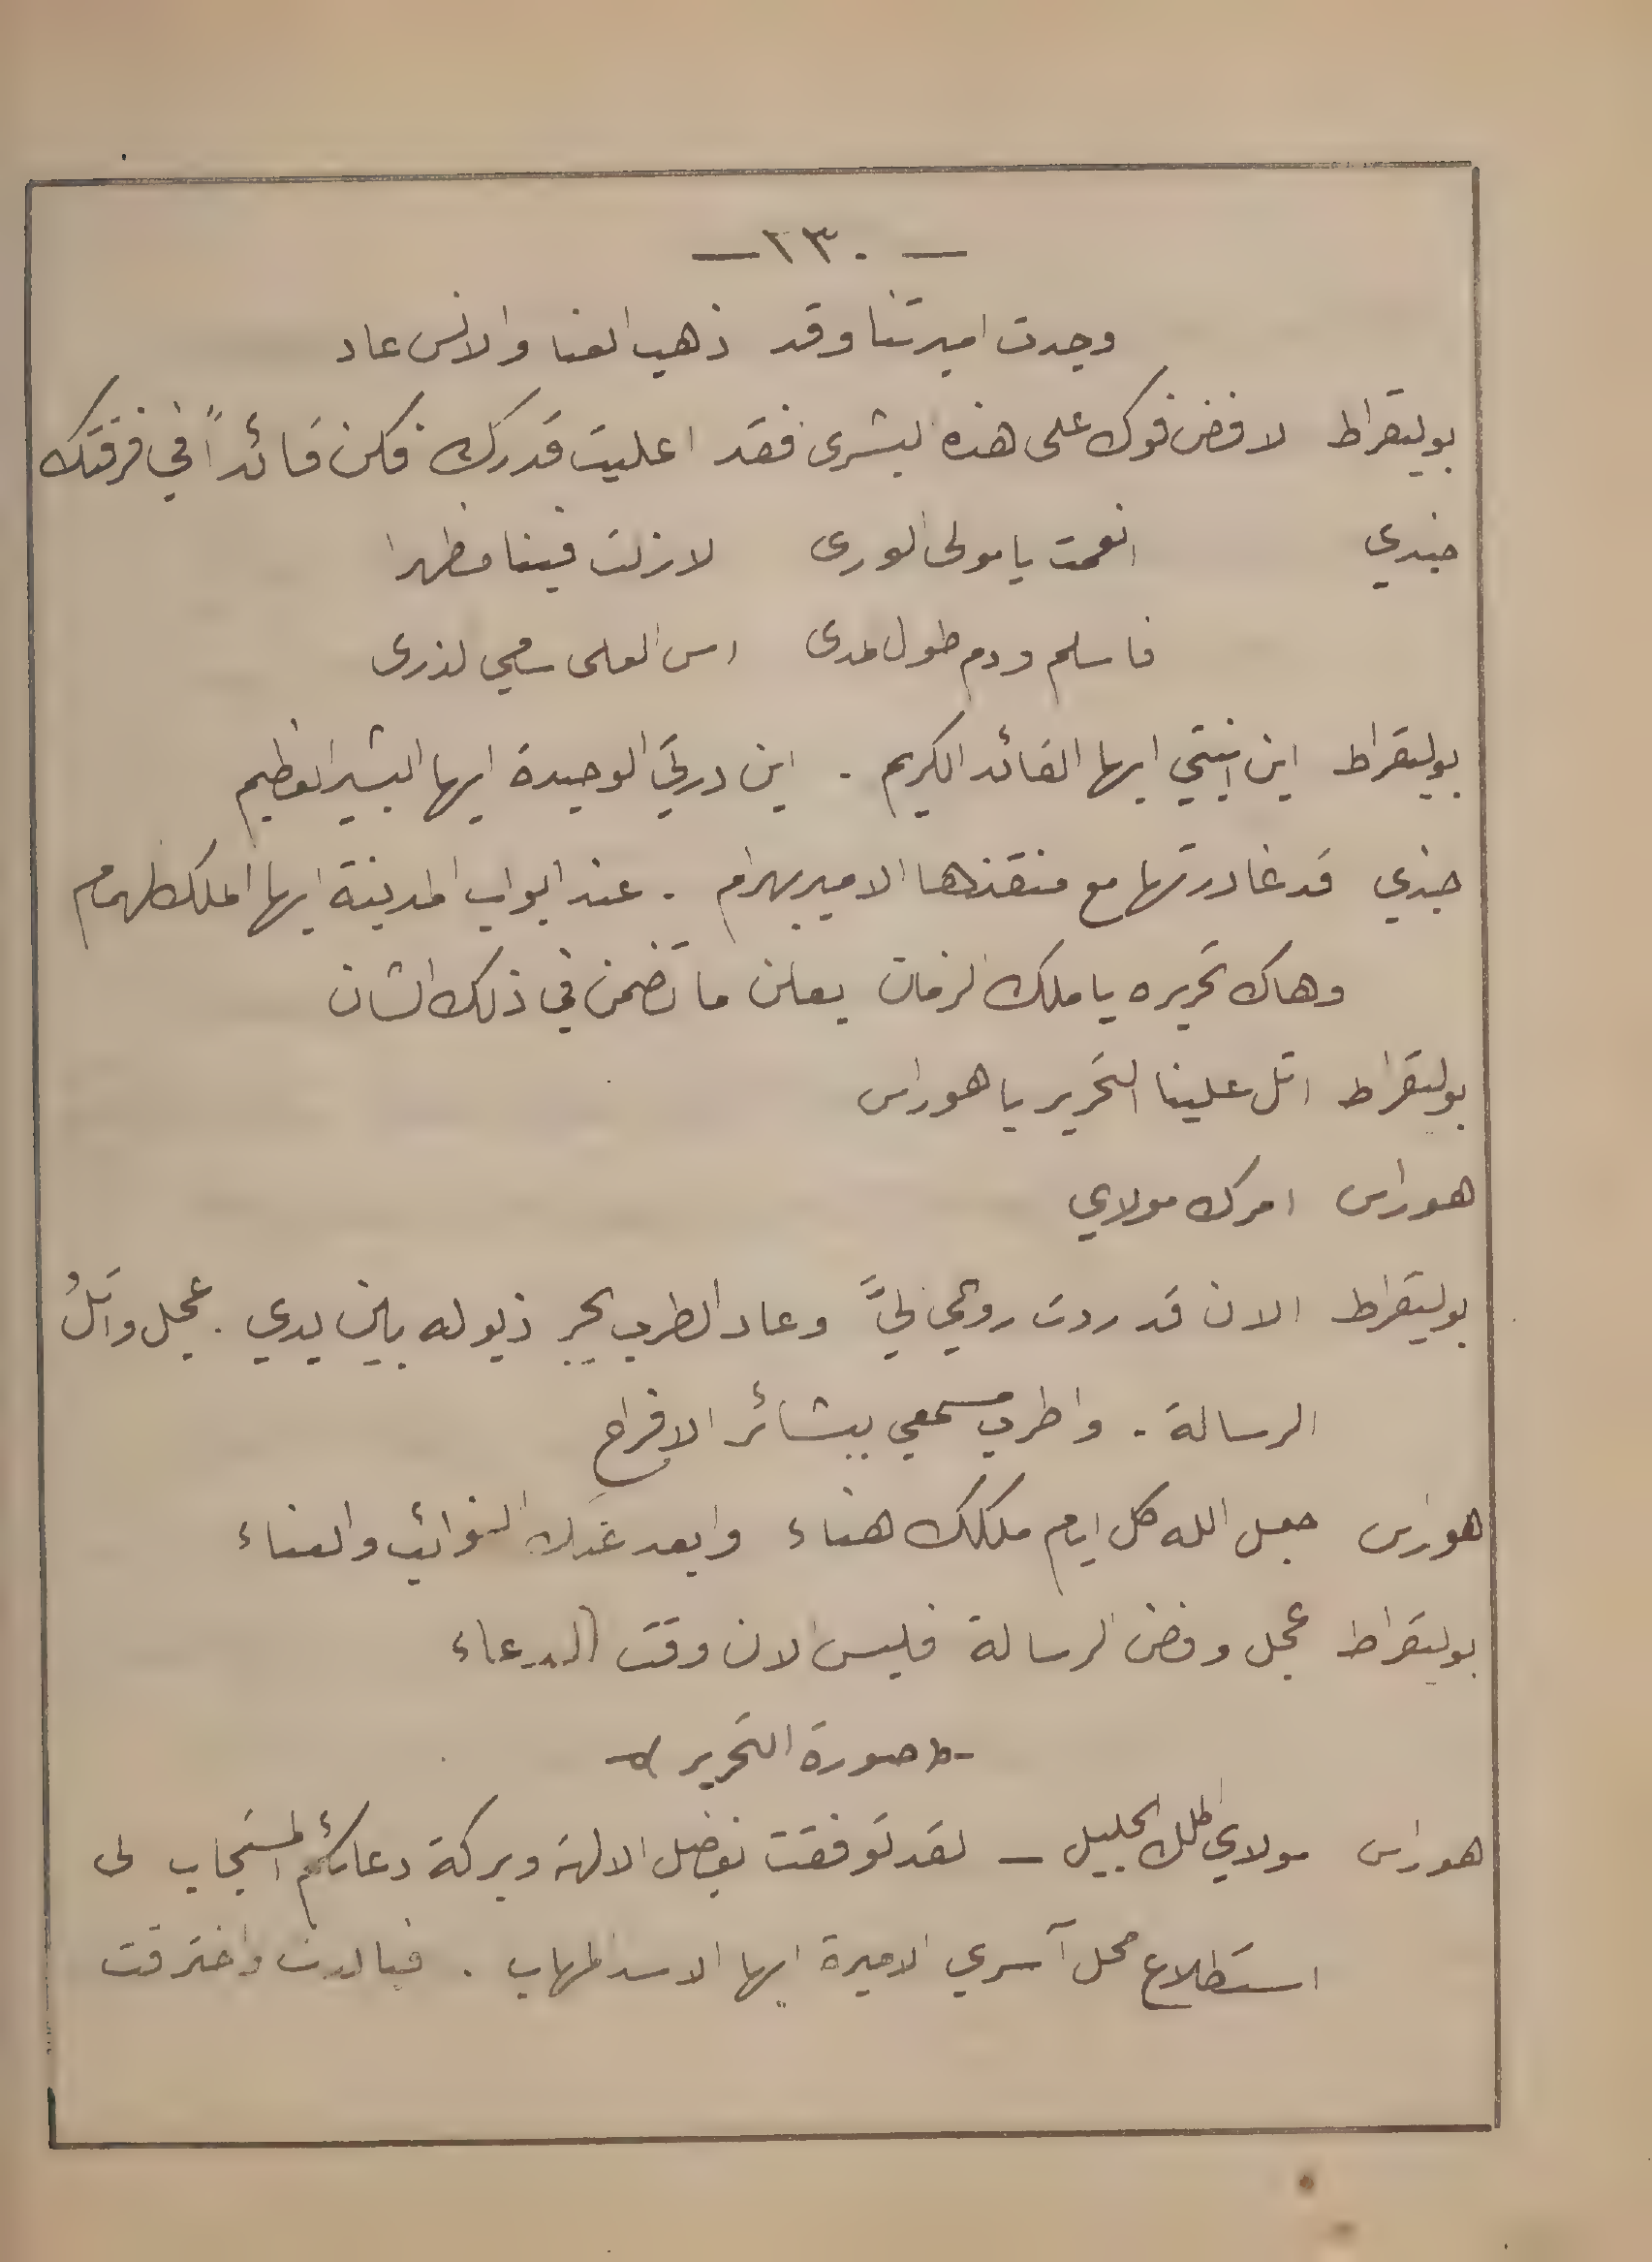 — ٢٣٠ —
وجدت اميرتنا وقد ذهب العنا والانس عاد
بوليقراط لا فض فوك على هذه البشرى فقد اعليت قدرك فكن قائداً في فرقتك
جندي انعمت يا مولى الورى لا زلت فينا مظهرا
فاسلم ودم طول المدى اس العلى سامي الذرى
بوليقراط اين ابنتي ايها القائد الكريم . اين درتي الوحيدة ايها البشير العظيم
جندي قد غادرتها مع منقذها الامير بهرام . عند ابواب المدينة ايها الملك الهمام
وهاك تحريره يا ملك الزمان يعلن ما تضمن في ذلك الشان
بوليقراط اتل علينا التحرير يا هوراس
هوراس امرك مولاي
بوليقراط الان قد ردت روحي اليَّ وعاد الطرب يجر ذيوله بين يدي . عجل واتلُ
الرسالة . واطرب مسمعي ببشائر الافراح
هوراس جعل الله كل ايام ملكك هناء وابعد عنك النوائب والعناء
بوليقراط عجل وفض الرسالة فليس الان وقت الدعاء
صورة التحرير
هوراس مولاي الملك الجليل — لقد توفقت بفضل الالهة وبركة دعائكم المستجاب الى
استطلاع محل آسري الاميرة ايها الاسد المهاب . واخترقت